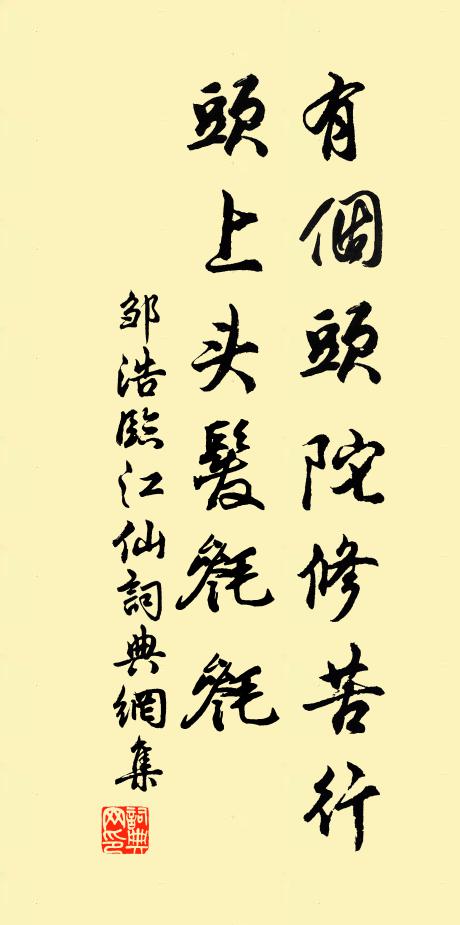 有個頭陀修苦行
頭上头髮毿毿
邹浩臨江仙詞典網集
詞典网印